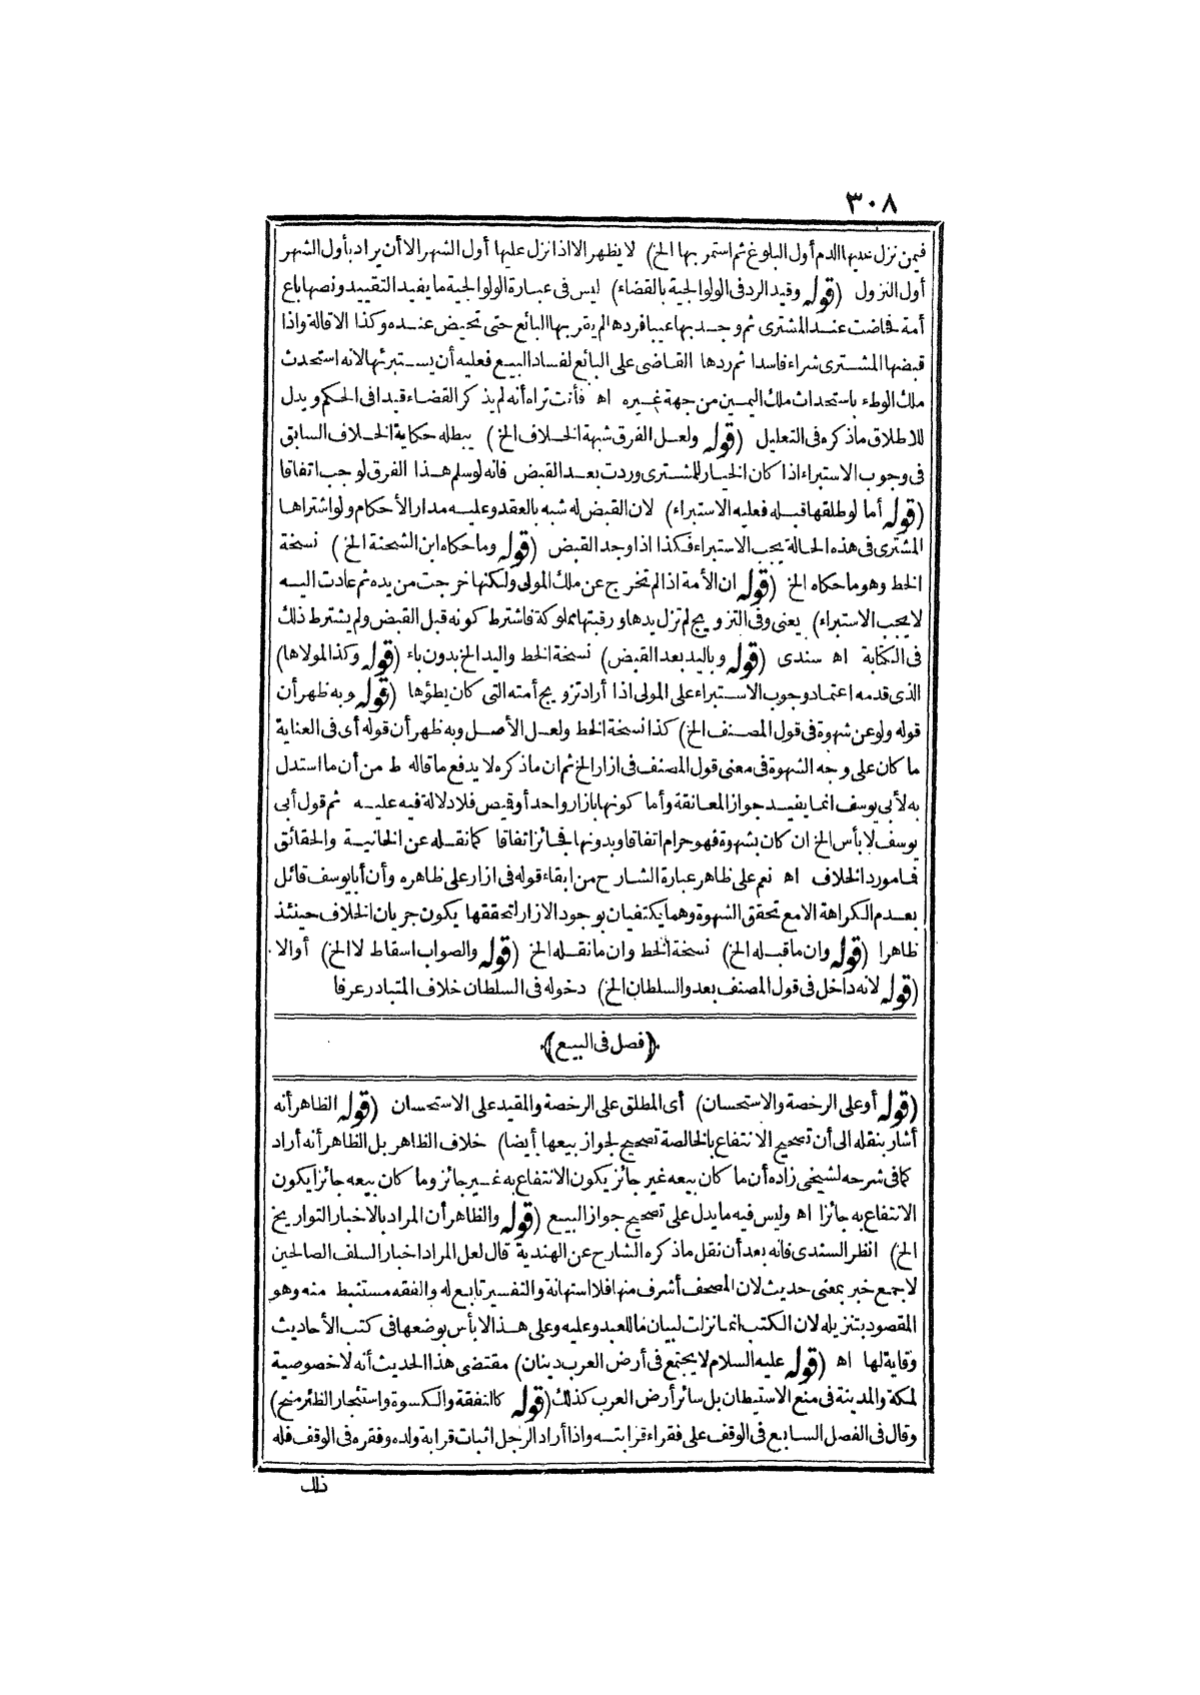 ٣٠٨
فيمن نزل عليها الدم أول البلوغ ثم استمر بها الخ) لا يظهر الا اذا نزل عليها أول الشهر الا أن يراد بأول الشهر
أول النزول (قوله وقيد الرد فى الولوالجية بالقضاء) ليس فى عبارة الولوالجية ما يفيد التقييد ونصها باع
أمة فحاضت عند المشترى ثم وجد بها عيبا فردها لم يقربها البائع حتى تحيض عنده وكذا الاقالة واذا
قبضها المشترى شراء فاسدا ثم ردها القاضى على البائع لفساد البيع فعليه أن يستبرئها لانه استحدث
ملك الوطء باستحداث ملك اليمين من جهة غيره اه فأنت تراه أنه لم يذكر القضاء قيدا فى الحكم ويدل
للاطلاق ما ذكره فى التعليل (قوله ولعل الفرق شبهة الخلاف الخ) يبطله حكاية الخلاف السابق
فى وجوب الاستبراء اذا كان الخيار للمشترى وردت بعد القبض فانه لو سلم هذا الفرق لوجب اتفاقا
(قوله أما لو طلقها قبله فعليه الاستبراء) لان القبض له شبه بالعقد وعليه مدار الأحكام ولو اشتراها
المشترى فى هذه الحالة يجب الاستبراء فكذا اذا وجد القبض (قوله وما حكاه ابن الشحنة الخ) نسخة
الخط وهو ما حكاه الخ (قوله ان الأمة اذا لم تخرج عن ملك المولى ولكنها خرجت من يده ثم عادت اليه
لا يجب الاستبراء) يعنى وفى التزويج لم تزل يدها ورقبتها مملوكة فاشترط كونه قبل القبض ولم يشترط ذلك
فى الكتابة اه سندى (قوله وباليد بعد القبض) نسخة الخط واليد الخ بدون باء (قوله وكذا لمولاها)
الذى قدمه اعتماد وجوب الاستبراء على المولى اذا أراد تزويج أمته التى كان يطؤها (قوله وبه ظهر أن
قوله ولو عن شهوة فى قول المصنف الخ) كذا نسخة الخط ولعل الأصل وبه ظهر أن قوله أى فى العناية
ما كان على وجه الشهوة فى معنى قول المصنف فى ازار الخ ثم ان ما ذكره لا يدفع ما قاله ط من أن ما استدل
به لأبى يوسف انما يفيد جواز المعانقة وأما كونها بازار واحد أو قميص فلا دلالة فيه عليه ثم قول أبى
يوسف لا بأس الخ ان كان بشهوة فهو حرام اتفاقا وبدونها فجائز اتفاقا كما نقله عن الخانية والحقائق
فما مورد الخلاف اه نعم على ظاهر عبارة الشارح من ابقاء قوله فى ازار على ظاهره وأن أبا يوسف قائل
بعدم الكراهة الا مع تحقق الشهوة وهما يكتفيان بوجود الازار لتحققها يكون جريان الخلاف حينئذ
ظاهرا (قوله وان ما قبله الخ) نسخة الخط وان ما نقله الخ (قوله والصواب اسقاط لا الخ) أو الا
(قوله لانه داخل فى قول المصنف بعد والسلطان الخ) دخوله فى السلطان خلاف المتبادر عرفا
﴿فصل فى البيع﴾
(قوله أو على الرخصة والاستحسان) أى المطلق على الرخصة والمقيد على الاستحسان (قوله الظاهر أنه
أشار بنقله الى أن تصحيح الانتفاع بالخالصة تصحيح لجواز بيعها أيضا) خلاف الظاهر بل الظاهر أنه أراد
كما فى شرحه لشيخى زاده أن ما كان بيعه غير جائز يكون الانتفاع به غير جائز وما كان بيعه جائزا يكون
الانتفاع به جائزا اه وليس فيه ما يدل على تصحيح جواز البيع (قوله والظاهر أن المراد بالاخبار التواريخ
الخ) انظر السندى فانه بعد أن نقل ما ذكره الشارح عن الهندية قال لعل المراد اخبار السلف الصالحين
لا جمع خبر بمعنى حديث لان المصحف أشرف منها فلا استهانة والتفسير تابع له والفقه مستنبط منه وهو
المقصود بتنزيله لان الكتب انما نزلت لبيان ما للعبد وعليه وعلى هذا لا بأس بوضعها فى كتب الأحاديث
وقاية لها اه (قوله عليه السلام لا يجتمع فى أرض العرب دينان) مقتضى هذا الحديث أنه لا خصوصية
لمكة والمدينة فى منع الاستيطان بل سائر أرض العرب كذلك (قوله كالنفقة والكسوة واستئجار الظئر منح)
وقال فى الفصل السابع فى الوقف على فقراء قرابته واذا أراد الرجل اثبات قرابة ولده وفقره فى الوقف فله
ذلك